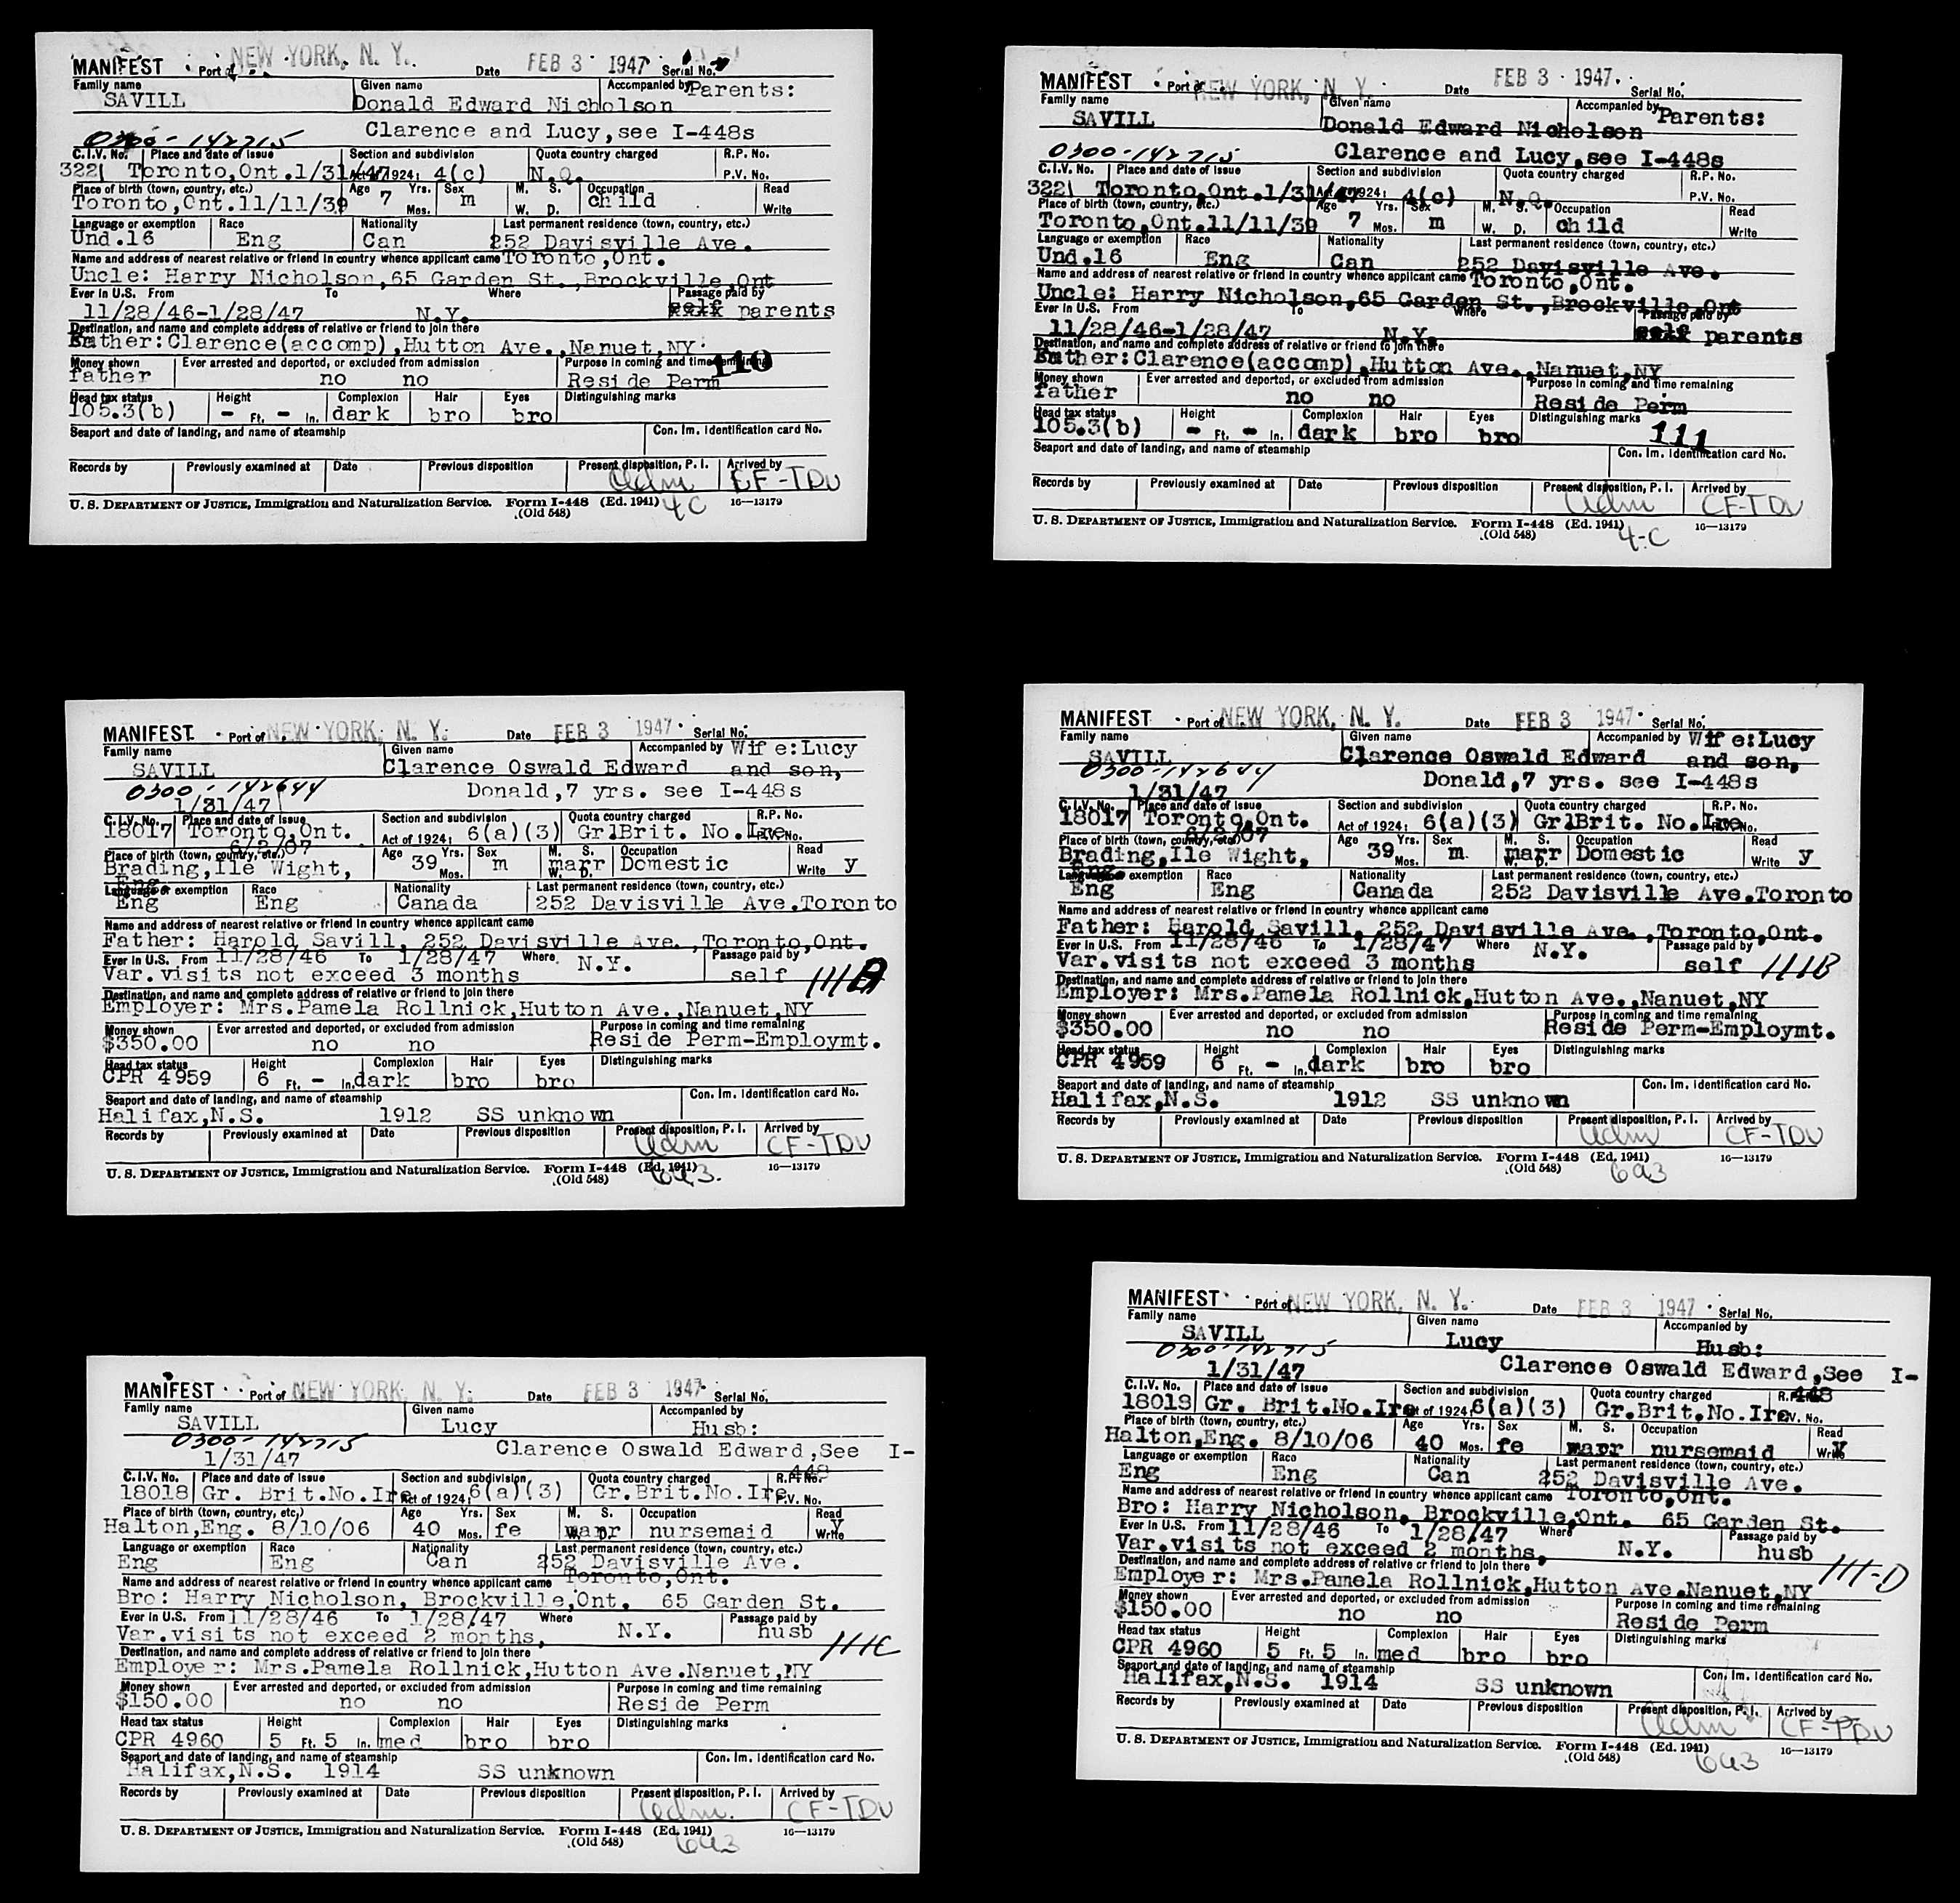 MANIFEST Port of NEW YORK, N. Y. Date FEB 3 1947 Serial No.
Family name Given name Accompanied by Parents:
SAVILL Donald Edward Nicholson
0300-142715 Clarence and Lucy, see I-448s
C.I.V. No. Place and date of issue Section and subdivision Quota country charged R.P. No.
322 Toronto,Ont.1/31/47 Act of 1924: 4(c) N.Q. P.V. No.
Place of birth (town, country, etc.) Age 7 Yrs. Sex M. S. Occupation Read
Toronto,Ont.11/11/39 Mos. m W. D. child Write
Language or exemption Race Nationality Last permanent residence (town, country, etc.)
Und.16 Eng Can 252 Davisville Ave.
Name and address of nearest relative or friend in country whence applicant came Toronto,Ont.
Uncle: Harry Nicholson,65 Garden St.,Brockville,Ont
Ever in U.S. From To Where Passage paid by
11/28/46-1/28/47 N.Y. self parents
Destination, and name and complete address of relative or friend to join there
Father:Clarence(accomp),Hutton Ave.,Nanuet,NY
Money shown Ever arrested and deported, or excluded from admission Purpose in coming and time remaining 110
father no no Reside Perm
Head tax status Height Complexion Hair Eyes Distinguishing marks
105.3(b) - Ft. - In. dark bro bro
Seaport and date of landing, and name of steamship Con. Im. Identification card No.
Records by Previously examined at Date Previous disposition Present disposition, P. I. Arrived by
Adm CF-TDV
U. S. DEPARTMENT OF JUSTICE, Immigration and Naturalization Service. Form I-448 (Ed. 1941) 4C 16—13179
(Old 548)
MANIFEST Port of NEW YORK, N. Y. Date FEB 3 1947 Serial No.
Family name Given name Accompanied by Parents:
SAVILL Donald Edward Nicholson
0300-142715 Clarence and Lucy, see I-448s
C.I.V. No. Place and date of issue Section and subdivision Quota country charged R.P. No.
322 Toronto,Ont.1/31/47 Act of 1924: 4(c) N.Q. P.V. No.
Place of birth (town, country, etc.) Age 7 Yrs. Sex M. S. Occupation Read
Toronto,Ont.11/11/39 Mos. m W. D. child Write
Language or exemption Race Nationality Last permanent residence (town, country, etc.)
Und.16 Eng Can 252 Davisville Ave.
Name and address of nearest relative or friend in country whence applicant came Toronto,Ont.
Uncle: Harry Nicholson,65 Garden St.,Brockville,Ont
Ever in U.S. From To Where Passage paid by
11/28/46-1/28/47 N.Y. self parents
Destination, and name and complete address of relative or friend to join there
Father:Clarence(accomp),Hutton Ave.,Nanuet,NY
Money shown Ever arrested and deported, or excluded from admission Purpose in coming and time remaining
father no no Reside Perm
Head tax status Height Complexion Hair Eyes Distinguishing marks
105.3(b) - Ft. - In. dark bro bro 111
Seaport and date of landing, and name of steamship Con. Im. Identification card No.
Records by Previously examined at Date Previous disposition Present disposition, P. I. Arrived by
Adm CF-TDV
U. S. DEPARTMENT OF JUSTICE, Immigration and Naturalization Service. Form I-448 (Ed. 1941) 16—13179
(Old 548) 4-C
MANIFEST Port of NEW YORK, N. Y. Date FEB 3 1947 Serial No.
Family name Given name Accompanied by Wife:Lucy
SAVILL Clarence Oswald Edward and son,
0300-142644 Donald,7 yrs. see I-448s
1/31/47
C.I.V. No. Place and date of issue Section and subdivision Quota country charged R.P. No.
18017 Toronto,Ont. Act of 1924: 6(a)(3) Gr.Brit. No.Ire P.V. No.
6/2/07
Place of birth (town, country, etc.) Age 39 Yrs. Sex M. S. Occupation Read
Brading,Ile Wight, Mos. m marr W. D. Domestic Write y
Eng.
Language or exemption Race Nationality Last permanent residence (town, country, etc.)
Eng Eng Canada 252 Davisville Ave.Toronto
Name and address of nearest relative or friend in country whence applicant came
Father: Harold Savill, 252 Davisville Ave.,Toronto,Ont.
Ever in U.S. From 11/28/46 To 1/28/47 Where N.Y. Passage paid by
Var.visits not exceed 3 months self 111A
Destination, and name and complete address of relative or friend to join there
Employer: Mrs.Pamela Rollnick,Hutton Ave.,Nanuet,NY
Money shown Ever arrested and deported, or excluded from admission Purpose in coming and time remaining
$350.00 no no Reside Perm-Employmt.
Head tax status Height Complexion Hair Eyes Distinguishing marks
CPR 4959 6 Ft. - In. dark bro bro
Seaport and date of landing, and name of steamship Con. Im. Identification card No.
Halifax,N.S. 1912 SS unknown
Records by Previously examined at Date Previous disposition Present disposition, P. I. Arrived by
Adm CF-TDV
U. S. DEPARTMENT OF JUSTICE, Immigration and Naturalization Service. Form I-448 (Ed. 1941) 16—13179
(Old 548) 6a3.
MANIFEST Port of NEW YORK, N. Y. Date FEB 3 1947 Serial No.
Family name Given name Accompanied by Wife:Lucy
SAVILL Clarence Oswald Edward and son,
0300-142644 Donald,7 yrs. see I-448s
1/31/47
C.I.V. No. Place and date of issue Section and subdivision Quota country charged R.P. No.
18017 Toronto,Ont. Act of 1924: 6(a)(3) Gr.Brit. No.Ire P.V. No.
6/2/07
Place of birth (town, country, etc.) Age 39 Yrs. Sex M. S. Occupation Read
Brading,Ile Wight, Mos. m marr W. D. Domestic Write y
Language or exemption Race Nationality Last permanent residence (town, country, etc.)
Eng Eng Canada 252 Davisville Ave.Toronto
Name and address of nearest relative or friend in country whence applicant came
Father: Harold Savill, 252 Davisville Ave.,Toronto,Ont.
Ever in U.S. From 11/28/46 To 1/28/47 Where N.Y. Passage paid by
Var.visits not exceed 3 months self 111B
Destination, and name and complete address of relative or friend to join there
Employer: Mrs.Pamela Rollnick,Hutton Ave.,Nanuet,NY
Money shown Ever arrested and deported, or excluded from admission Purpose in coming and time remaining
$350.00 no no Reside Perm-Employmt.
Head tax status Height Complexion Hair Eyes Distinguishing marks
CPR 4959 6 Ft. - In. dark bro bro
Seaport and date of landing, and name of steamship Con. Im. Identification card No.
Halifax,N.S. 1912 SS unknown
Records by Previously examined at Date Previous disposition Present disposition, P. I. Arrived by
Adm CF-TDV
U. S. DEPARTMENT OF JUSTICE, Immigration and Naturalization Service. Form I-448 (Ed. 1941) 16—13179
(Old 548) 6a3
MANIFEST Port of NEW YORK, N. Y. Date FEB 3 1947 Serial No.
Family name Given name Accompanied by
SAVILL Lucy Husb:
0300-142715 Clarence Oswald Edward,See I-
1/31/47 448
C.I.V. No. Place and date of issue Section and subdivision Quota country charged R.P. No.
18018 Gr. Brit.No.Ire Act of 1924: 6(a)(3) Gr.Brit.No.Ire P.V. No.
Place of birth (town, country, etc.) Age Yrs. Sex M. S. Occupation Read
Halton,Eng. 8/10/06 40 Mos. fe marr W. D. nursemaid Write y
Language or exemption Race Nationality Last permanent residence (town, country, etc.)
Eng Eng Can 252 Davisville Ave.
Name and address of nearest relative or friend in country whence applicant came Toronto,Ont.
Bro: Harry Nicholson, Brockville,Ont. 65 Garden St.
Ever in U.S. From 11/28/46 To 1/28/47 Where N.Y. Passage paid by
Var.visits not exceed 2 months, husb 111C
Destination, and name and complete address of relative or friend to join there
Employer: Mrs.Pamela Rollnick,Hutton Ave.Nanuet,NY
Money shown Ever arrested and deported, or excluded from admission Purpose in coming and time remaining
$150.00 no no Reside Perm
Head tax status Height Complexion Hair Eyes Distinguishing marks
CPR 4960 5 Ft. 5 In. med bro bro
Seaport and date of landing, and name of steamship Con. Im. Identification card No.
Halifax,N.S. 1914 SS unknown
Records by Previously examined at Date Previous disposition Present disposition, P. I. Arrived by
Adm. CF-TDV
U. S. DEPARTMENT OF JUSTICE, Immigration and Naturalization Service. Form I-448 (Ed. 1941) 16—13179
(Old 548) 6a3
MANIFEST Port of NEW YORK, N. Y. Date FEB 3 1947 Serial No.
Family name Given name Accompanied by
SAVILL Lucy Husb:
0300-142715 Clarence Oswald Edward,See I-
1/31/47 448
C.I.V. No. Place and date of issue Section and subdivision Quota country charged R.P. No.
18018 Gr. Brit.No.Ire Act of 1924: 6(a)(3) Gr.Brit.No.Ire P.V. No.
Place of birth (town, country, etc.) Age Yrs. Sex M. S. Occupation Read
Halton,Eng. 8/10/06 40 Mos. fe marr nursemaid Write y
Language or exemption Race Nationality Last permanent residence (town, country, etc.)
Eng Eng Can 252 Davisville Ave.
Name and address of nearest relative or friend in country whence applicant came Toronto,Ont.
Bro: Harry Nicholson, Brockville,Ont. 65 Garden St.
Ever in U.S. From 11/28/46 To 1/28/47 Where N.Y. Passage paid by
Var.visits not exceed 2 months, husb 111-D
Destination, and name and complete address of relative or friend to join there
Employer: Mrs.Pamela Rollnick,Hutton Ave.Nanuet,NY
Money shown Ever arrested and deported, or excluded from admission Purpose in coming and time remaining
$150.00 no no Reside Perm
Head tax status Height Complexion Hair Eyes Distinguishing marks
CPR 4960 5 Ft. 5 In. med bro bro
Seaport and date of landing, and name of steamship Con. Im. Identification card No.
Halifax,N.S. 1914 SS unknown
Records by Previously examined at Date Previous disposition Present disposition, P. I. Arrived by
Adm CF-PDV
U. S. DEPARTMENT OF JUSTICE, Immigration and Naturalization Service. Form I-448 (Ed. 1941) 16—13179
(Old 548) 6a3